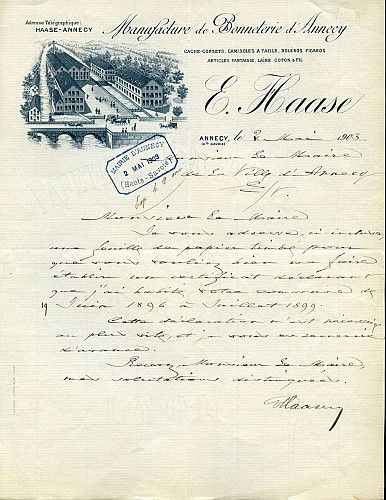 Adresse Télégraphique:
HAASE-ANNECY
Manufacture de Bonneterie d'Annecy
CACHE-CORSETS, CAMISOLES A TAILLE, BOLEROS FIGAROS
ARTICLES FANTAISIE, LAINE COTON & FIL
E. Haase
ANNECY, le 2 Mai 1903
(Hte SAVOIE)
MAIRIE D'ANNECY
2 MAI 1903
(Haute-Savoie)
Monsieur le Maire
de la Ville d'Annecy
E/V.
Monsieur le Maire
Je vous adresse, ci inclus
une feuille de papier timbré pour
que vous vouliez bien me faire
établir un certificat déclarant
que j'ai habité votre commune de
19 Juin 1896 à Juillet 1899.
Cette déclaration m'est nécessaire
au plus vite, et je vous en remercie
d'avance.
Recevez, Monsieur le Maire,
mes salutations distinguées.
EHaase